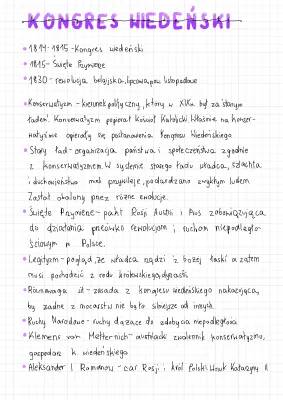 KONGRES WIEDEŃSKI
• 1814-1815 - Kongres wiedeński
• 1815 - Święte Przymierze
• 1830 - rewolucja belgijska, lipcowa, pow. listopadowe
Konserwatyzm - kierunek polityczny, który w XIXw był za "starym
ładem". Konserwatyzm popierał Kościół Katolicki. Właśnie na konser-
watyzmie opierały się postanowienia Kongresu Wiedeńskiego
• Stary ład - organizacja państwa i społeczeństwa zgodnie
z konserwatyzmem. W systemie starego ładu władca, szlachta
i duchowieństwo miał przywileje, pogardzano zwykłym ludem.
Został obalony przez różne rewolucje.
• Święte Przymierze - pakt Rosji Austrii i Prus zobowiązująca
do działania przeciwko rewolucjom i ruchom niepodległo-
ściowym w Polsce.
• Legitym - pogląd, że władca rządzi z bożej łaski a zatem
musi pochodzić z rodu królewskiego, dynastii.
• Równowaga sił - zasada z kongresu wiedeńskiego nakazująca,
by żadne z mocarstw nie było silniejsze od innych.
• Ruchy Narodowe - ruchy dążące do zdobycia niepodległości
• Klemens von Metternich - austriacki zwolennik konserwatyzmu,
gospodarz k. wiedeńskiego
• Aleksander I Romanow - car Rosji i król Polski. Wnuk Katarzyny II